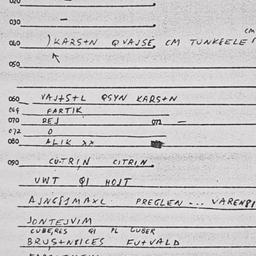 020
030 —
040 ) KARS+N QVAJSE, CM TUNKEELE
CM
050
060 VAJ+S+L QSYN KARS+N
069 FARTIK
070 REJ 071 —
072 O
080 ALIK XX
090 CU+RIN CITRIN
UWT QI HOJT
PREGLEN ... VARENP
JONTEJVIM
CUBERES QI PL CUBER
BRUS+NEICES FU+VALD